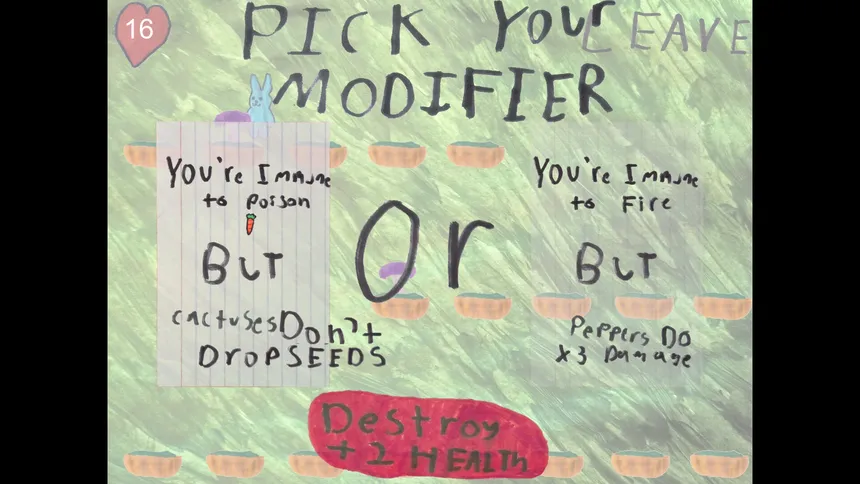 16
PICK YOUr
LEAVE
MODIFIER
You're Immune
to Poison
BUT
cactuses Don't
DroP SEEDS
Or
You're Immune
to Fire
BUT
PePPers DO
x3 Damage
Destroy
+2 HEALTh